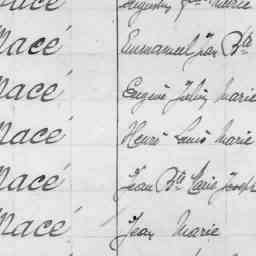 Macé Augustin Marie
Macé Emmanuel Jean Bte
Macé Eugène Julien Marie
Macé Henri Louis Marie
Macé Jean Bte Marie Joseph
Macé Jean Marie